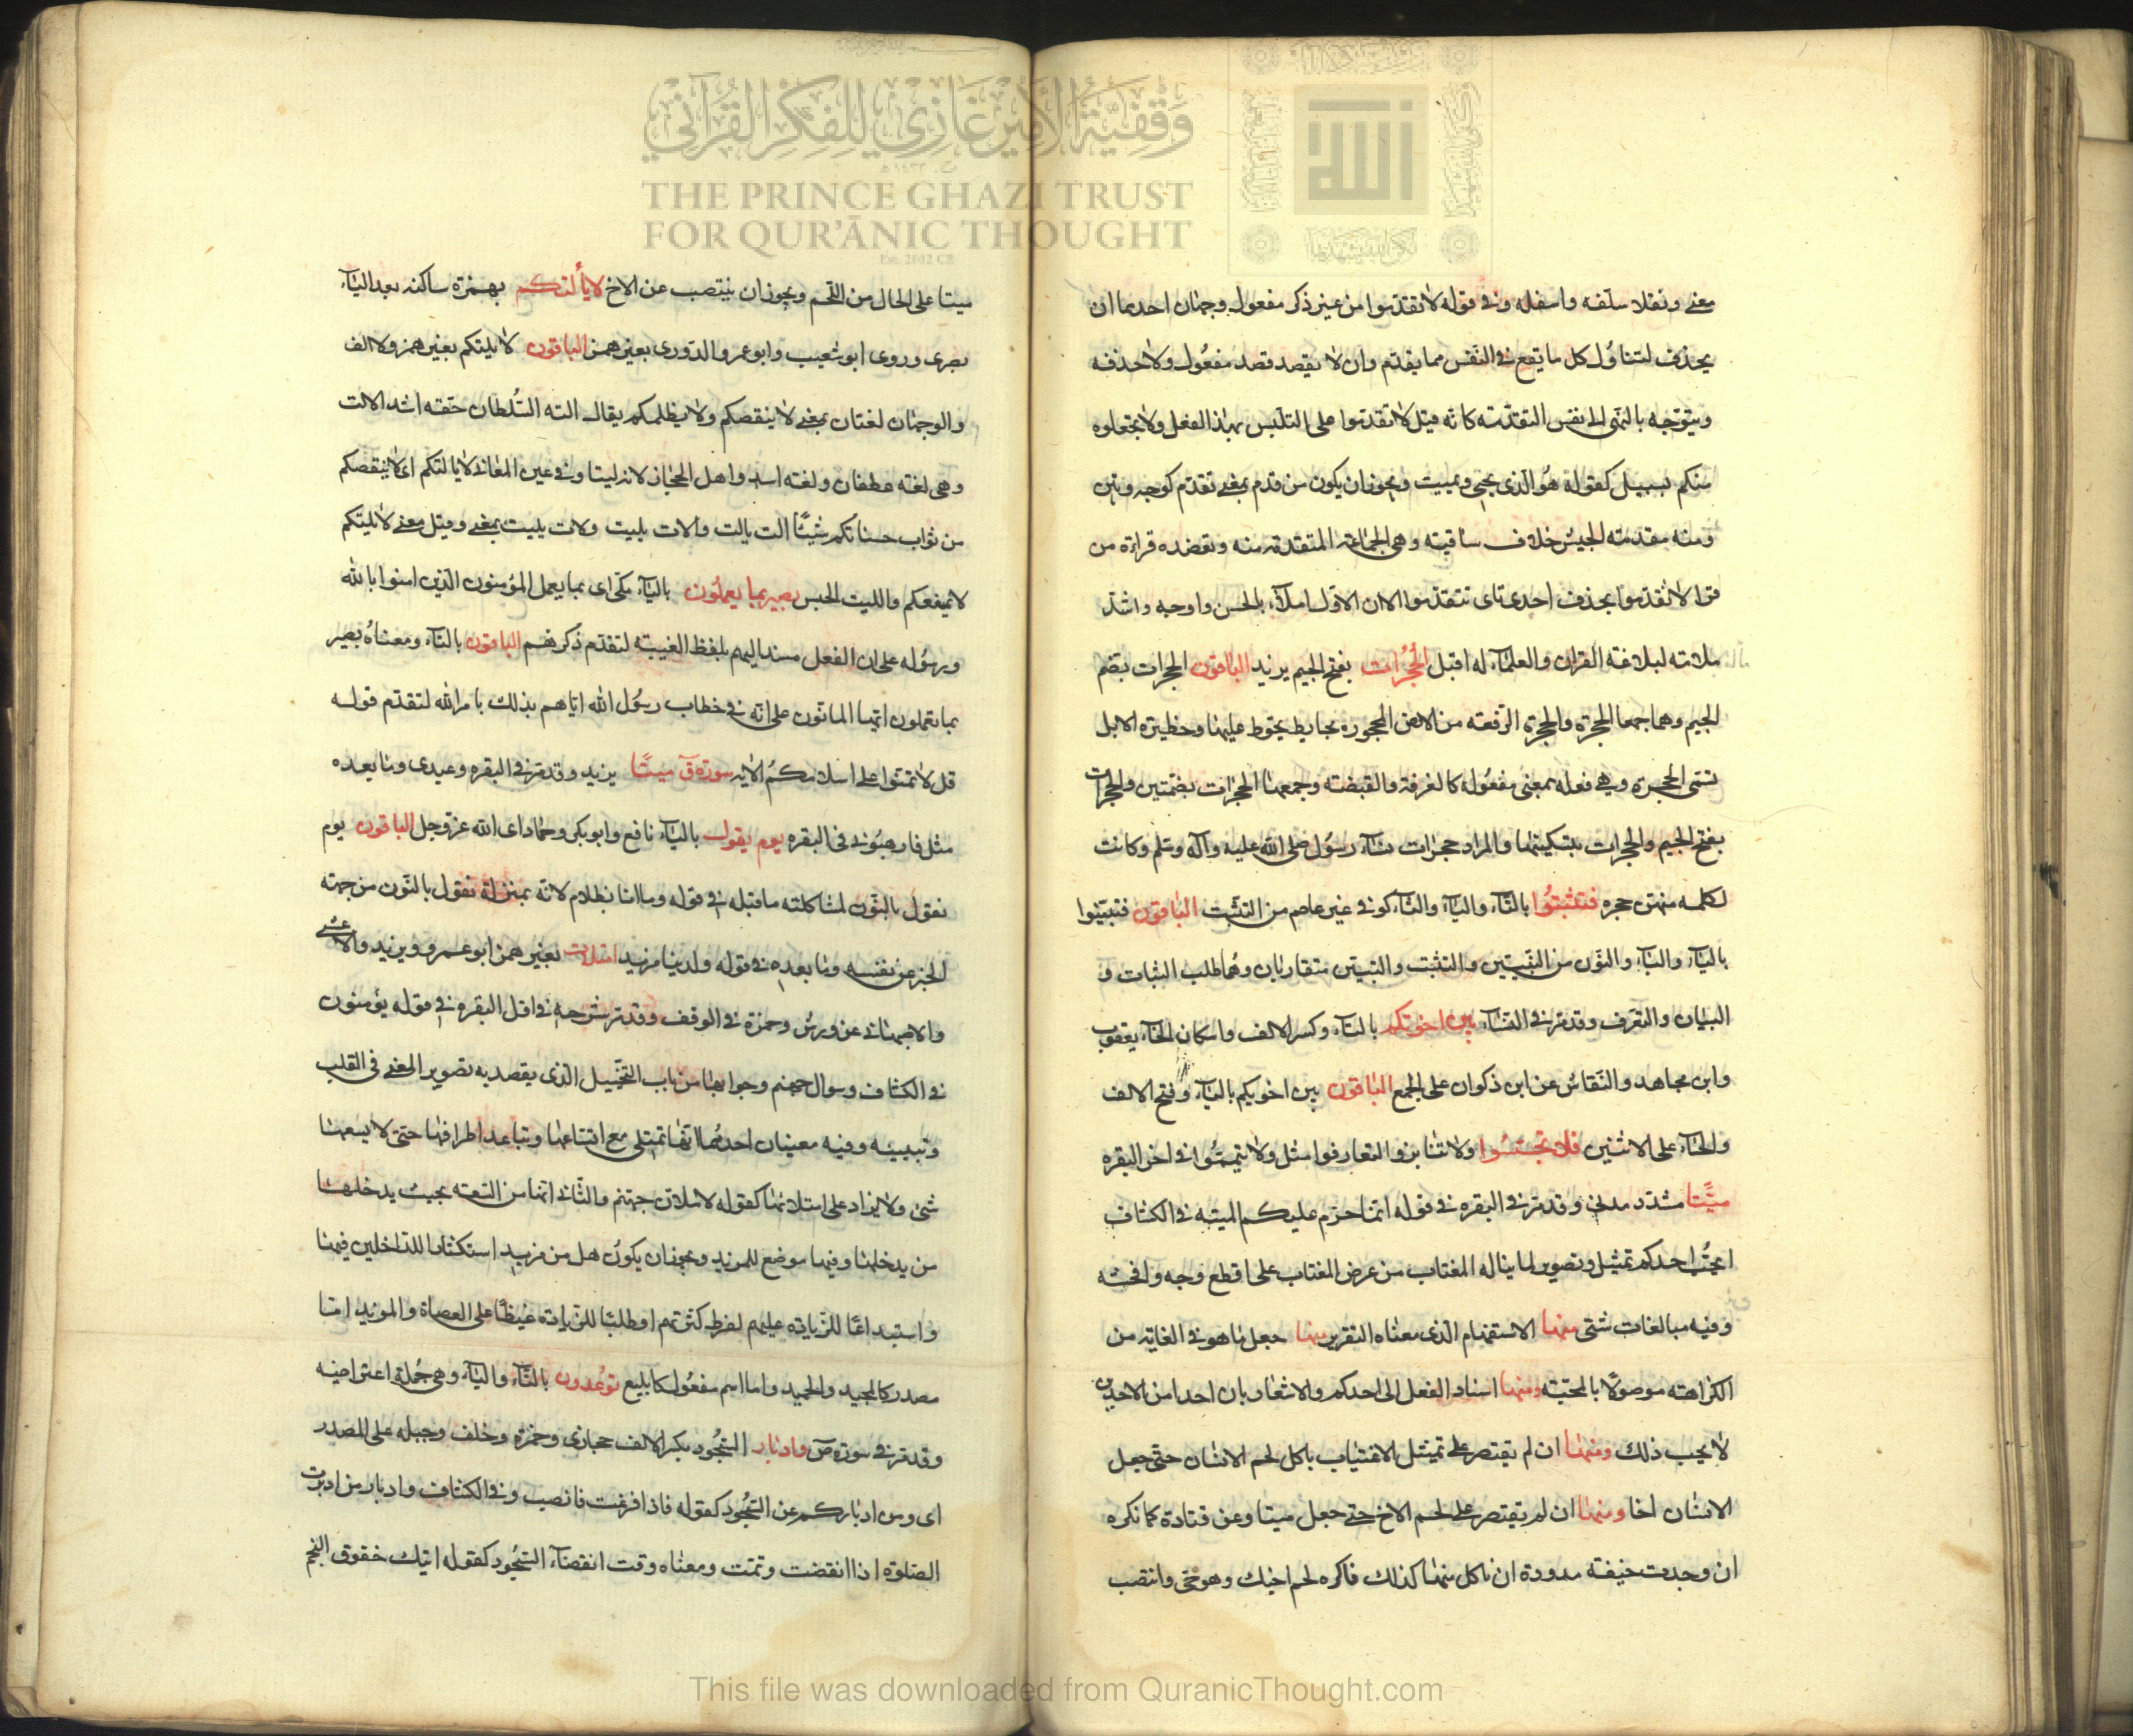 معنے ونفلا سلّفه واسفله وفي قوله لا تقدّموا من غير ذكر مفعول وجهان احدهما ان
يحذف لتناوُل كل ما يقع في النفس مما يقدم وان لا يقصد قصد مفعُول ولا حذفه
ويتوّجه بالنهى الى نفس التقدّمة كانه قيل لا تقدّموا على التلبّس بهذا الفعل ولا تجعلوه
منكم بسبيل كقوله هُو الّذى يحيي ويميت ويجوز ان يكون من قدّم بمعنى تقدّم كوجه وبيّن
ومنه مقدمته الجيش خلاف ساقيته وهى الجماعة المتقدمة منه وتعضده قراءة من
قرا لا تقدّموا بحذف احدى تاى تتقدّموا الا ان الاوّل املأ بالحسن واوجه واشدّ
ملائمة لبلاغة القران والعلمآء له اقبل الحُجُرات بفتح الجيم يزيد الباقون الحجرات بضم
الجيم وهما جمعا الحجرة والحجرة الرقعة من الارض المحجورة بحايط يحوّط عليها وحظيرة الابل
تسمّى الحجرة وهي فعله بمعنى مفعُوله كالغرفة والقبضة وجمعها الحجرات بضمّتين والحجرات
بفتح الجيم والحجرات بتسكينها والمراد حجرات نسآء رسُول صلى الله عليه وآله وسلم وكانت
لكلمه منهن حجره فتثبّتُوا بالتّآء والبآء والثّآء كوفي غير عاصم من التثبّت الباقون فتبيّنوا
باليآء والبآء والنون من التبيّن والتثبت والتبيّن متقاربان وهُما طلب الثبات و
البيان والتعرف وقد مرّ في النسآء بين اخوتكم بالتآء وكسر الالف واسكان الخآء يعقوب
وابن مجاهد والنّقاش عن ابن ذكوان على الجمع الباقون بين اخويكم باليآء وفتح الالف
والخآء على الاثنين فلا تجسّسُوا ولا تنابزوا التعارفوا مثل ولا تيمّمُوا في اخر البقره
ميّتًا مشدّد مدنى وقد مرّ في البقره في قوله انما حرّم عليكم الميته في الكشاف
ايحبُّ احدكم تمثيل وتصوير لما يناله المغتاب من عرض المغتاب على اقطع وجه وافحشه
وفيه مبالغات شتى منها الاستفهام الّذى معناه التقرير ومنها جعل ما هو في الغاية من
الكراهته موصولًا بالمحبّته ومنها اسناد الفعل الى احدكم والاشعار بان احدا من الاحدين
لا يحب ذلك ومنها ان لم يقتصر على تمثيل الاغتياب باكل لحم الانسان حتّى جعل
الانسان اخا ومنها ان لم يقتصر على لحم الاخ حتى جعل ميتا وعن قتادة كما تكره
ان وجدت جيفته مدودة ان تاكل منها كذلك فاكره لحم اخيك وهو حىّ وانتصب
ميتا على الحال من اللّحم ويجوز ان ينتصب عن الاخ لا يألتكم بهمزة ساكنه بعد اليآء
بصرى وروى ابو شعيب وابو عمر والدّورى بغير همز الباقون لا يلتكم بغير همز ولا الف
والوجهان لغتان بمعنى لا ينقصكم ولا يظلمكم يقال الته السُّلطان حقّه اشد الالت
وهى لغة غطفان ولغة اسد واهل الحجاز لاته ليتا وفي عين المعانى لا يالتكم اى لا ينقصكم
من ثواب حسناتكم شيئًا الت يالت والات يليت ولات يليت بمعنى وقيل معنى لا يليتكم
لا يمنعكم والليت الحبس بصير بما يعملُون باليآء مكّى اى بما يعمل المؤمنون الّذين امنوا بالله
ورسُوله على ان الفعل مسند اليهم بلفظ الغيبته لتقدّم ذكرهم الباقون بالتآء ومعناهُ بصير
بما تعملون ايّها المانّون على انّه في خطاب رسُول الله ايّاهم بذلك بامر الله لتقدّم قوله
قل لا تمنّوا على اسلامكمُ الآيه سورة قٓ ميتًا يزيد وقد مرّ في البقره وعيدى وما بعده
مثل فارهبُونى فى البقره يوم يقول باليآء نافع وابوبكر وحمّاد اى الله عزّوجل الباقون يوم
نقول بالنّون لمشاكلته ما قبله في قوله وما انا بظلام لانّه بمنزلة نقول بالنّون من جهته
الخبر عن نفسه وما بعده في قوله ولدينا مزيد امتلات بغير همز ابو عمرو ويزيد والاعشى
والاصبهانى عن ورش وحمزة في الوقف وقد مرّ شرحه في اوّل البقره في قوله يؤمنون
في الكشاف وسوال جهنم وجوابها من باب التخييل الّذى يقصد به تصوير المعنى فى القلب
وتبيينه وفيه معنيان احدهُما انّها تمتلى مع اتّساعها وتباعد اطرافها حتّى لا يسعها
شئ ولا يزاد على امتلائها كقوله لاملانّ جهنّم والثّانى انّها من السّعة بحيث يدخلها
من يدخلها وفيها موضع للمزيد ويجوز ان يكونُ هل من مزيد استكثارا للدّاخلين فيها
واستبداعًا للزّيادة عليهم لفرط كثرتهم او طلبًا للزّيادة غيظًا على العصاة والمزيد امّا
مصدر كالمجيد والحميد واما اسم مفعُول كالبيع توُعدون بالتّآء واليآء وهى جُملة اعتراضيه
وقد مرّ في سورة صٓ وادبار السّجُود بكسر الالف حجازى وحمزة وخلف وجبله على المصدر
اى ومن ادباركم عن السّجُود كقوله فاذا فرغت فانصب وفي الكشاف وادبار من ادبرت
الصّلوة اذا انقضت وتمّت ومعناه وقت انقضآء السّجُود كقوله اتيك خفوق النّجم
وَقْفِيَّةُ الأَمِيرِ غَازِي لِلفِكْرِ القُرْآنِي
THE PRINCE GHAZI TRUST
FOR QUR'ĀNIC THOUGHT
Est. 2012 CE
This file was downloaded from QuranicThought.com